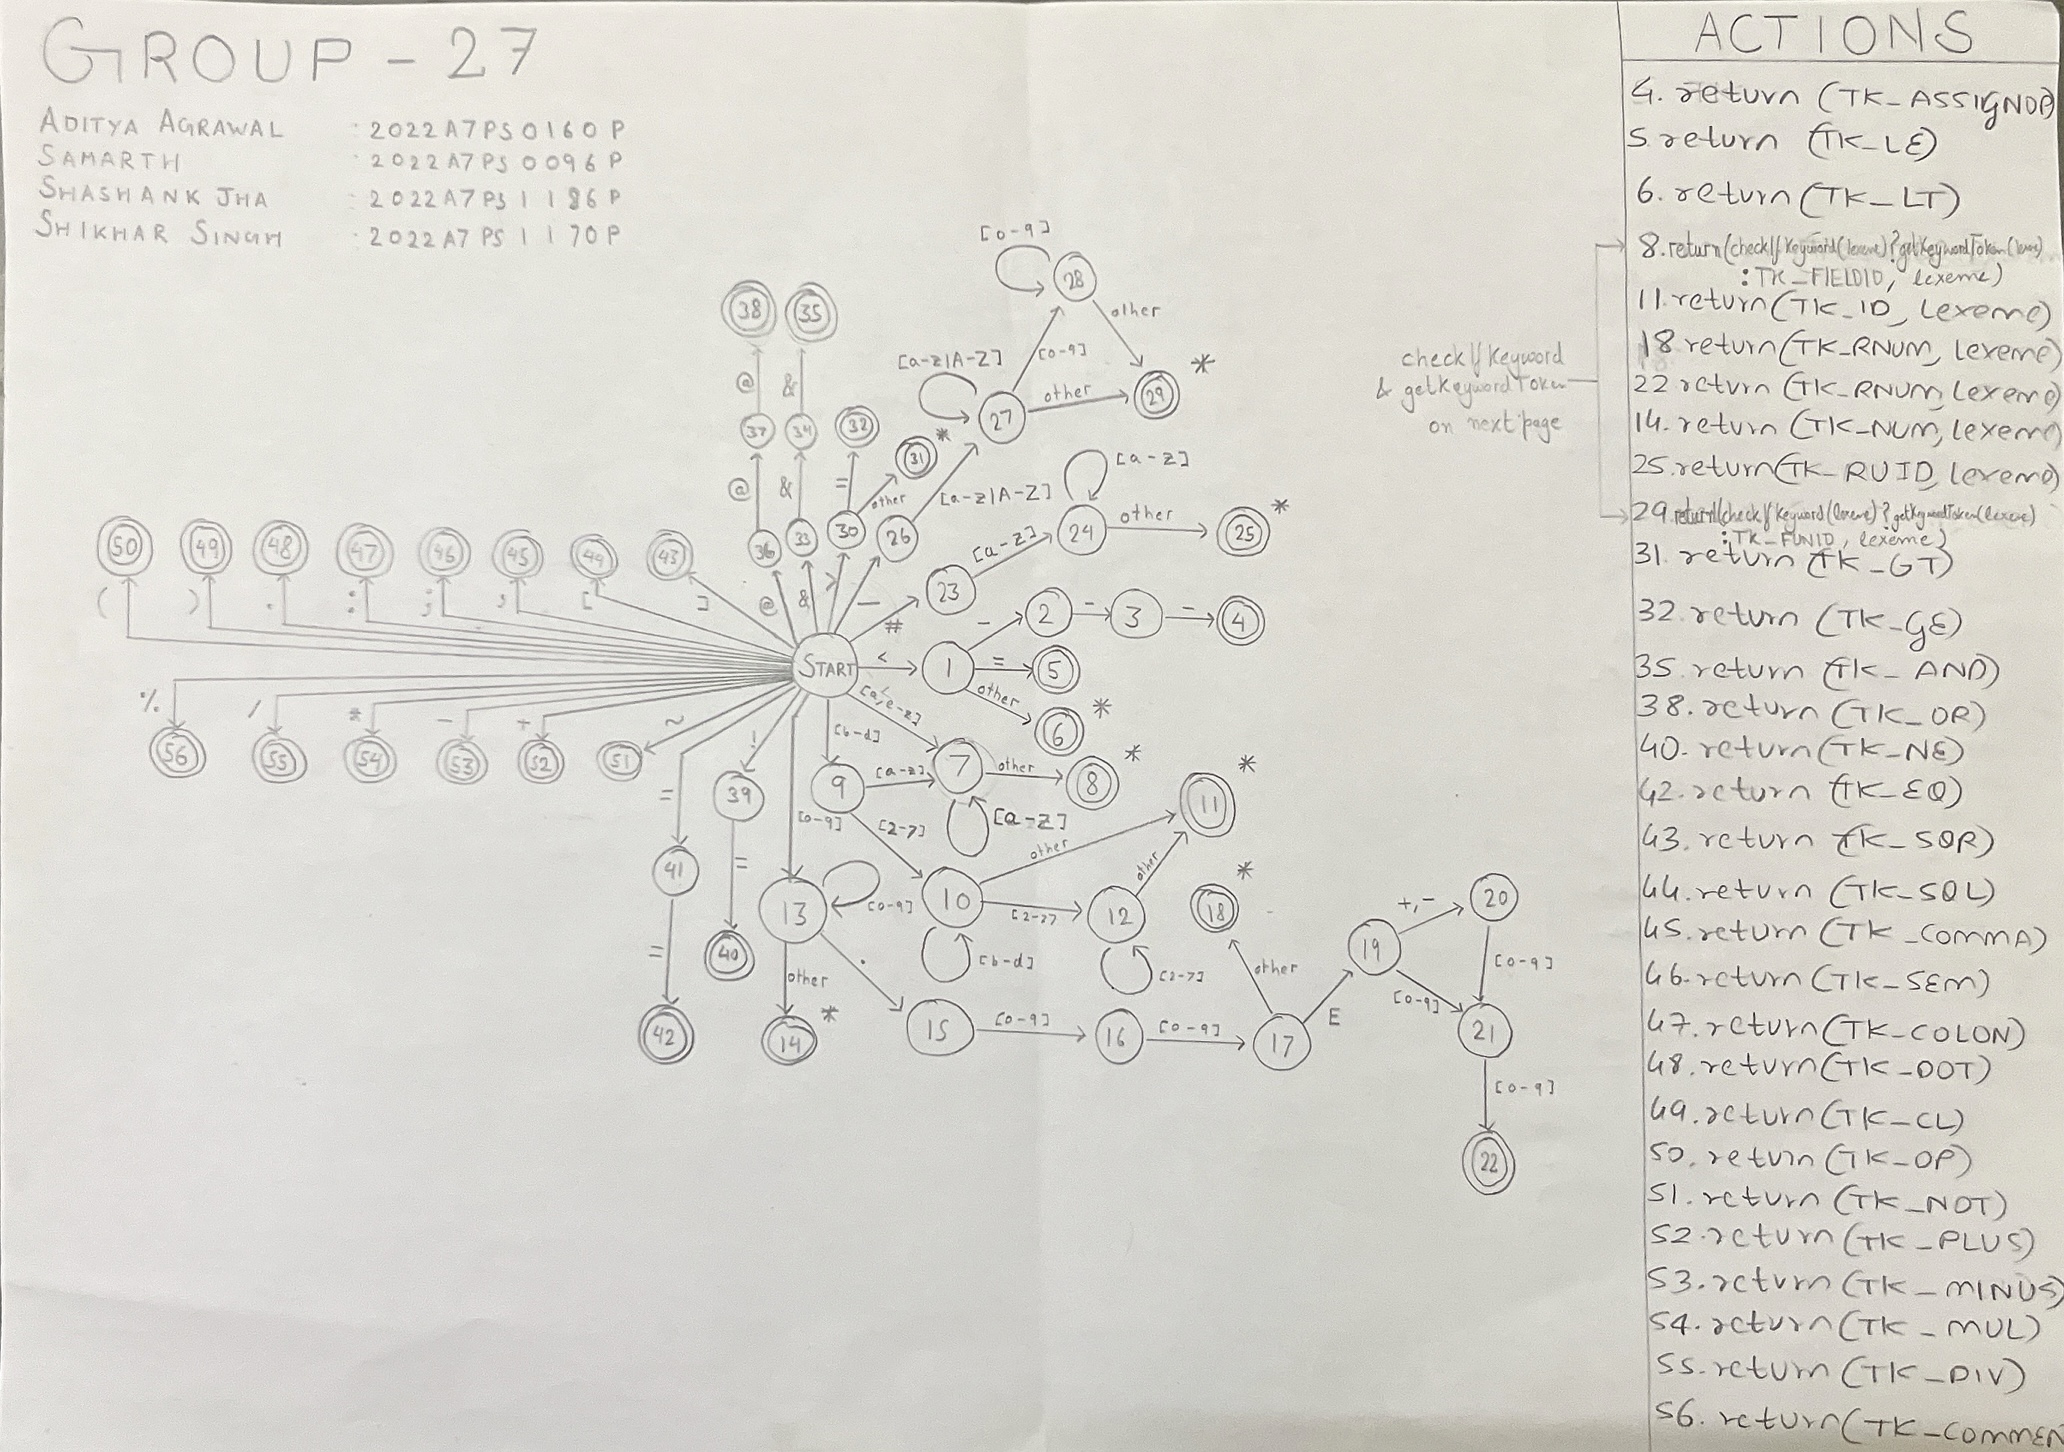 GROUP - 27
ADITYA AGRAWAL : 2022A7PS0160P
SAMARTH : 2022A7PS0096P
SHASHANK JHA : 2022A7PS1186P
SHIKHAR SINGH : 2022A7PS1170P
[0-9]
28
other
38 35
[a-z|A-Z]
[0-9]
*
@ &
27
other
29
37 34 32
31 *
[a-z]
@ & =
other
[a-z|A-Z]
24
other
25 *
50 49 48 47 46 45 44 43
36 33 30 26
[a-z]
( ) . : ; , [ ]
@ & > _
23
#
- 2 - 3 - 4
START
< 1 = 5
other
6 *
% / * - + ~
56 55 54 53 52 51
!
[b-d]
[a,e-z]
7
other
8 *
=
39
9
[a-z]
[a-z]
[0-9]
[2-7]
other
11 *
41
=
13
[0-9]
10
[2-7]
12
other
18 *
=
40
other
.
[b-d]
[2-7]
other
19
+,-
20
[0-9]
[0-9]
42
14 *
15
[0-9]
16
[0-9]
17
E
21
[0-9]
22
check If Keyword
& getKeywordToken
on next page
ACTIONS
4. return (TK_ASSIGNOP)
5. return (TK_LE)
6. return (TK_LT)
8. return (checkIfKeyword(lexeme)?getKeywordToken(lexeme)
: TK_FIELDID, lexeme)
11. return (TK_ID, lexeme)
18 return (TK_RNUM, lexeme)
22 return (TK_RNUM, lexeme)
14. return (TK_NUM, lexeme)
25. return (TK_RUID, lexeme)
29. return (checkIfKeyword(lexeme)?getKeywordToken(lexeme)
: TK_FUNID, lexeme)
31. return (TK_GT)
32. return (TK_GE)
35. return (TK_AND)
38. return (TK_OR)
40. return (TK_NE)
42. return (TK_EQ)
43. return (TK_SQR)
44. return (TK_SQL)
45. return (TK_COMMA)
46. return (TK_SEM)
47. return (TK_COLON)
48. return (TK_DOT)
49. return (TK_CL)
50. return (TK_OP)
51. return (TK_NOT)
52. return (TK_PLUS)
53. return (TK_MINUS)
54. return (TK_MUL)
55. return (TK_DIV)
56. return (TK_COMMEN